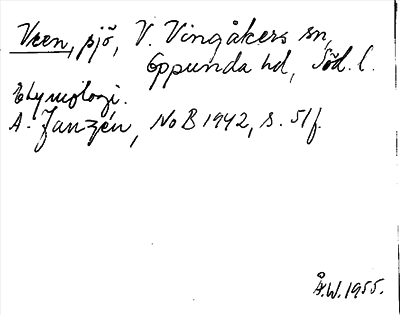 Vren, sjö, V. Vingåkers sn,
Oppunda hd, Söd. l.
Etymologi.
A. Janzén, NoB 1942, s. 51f.
Å.W. 1955.